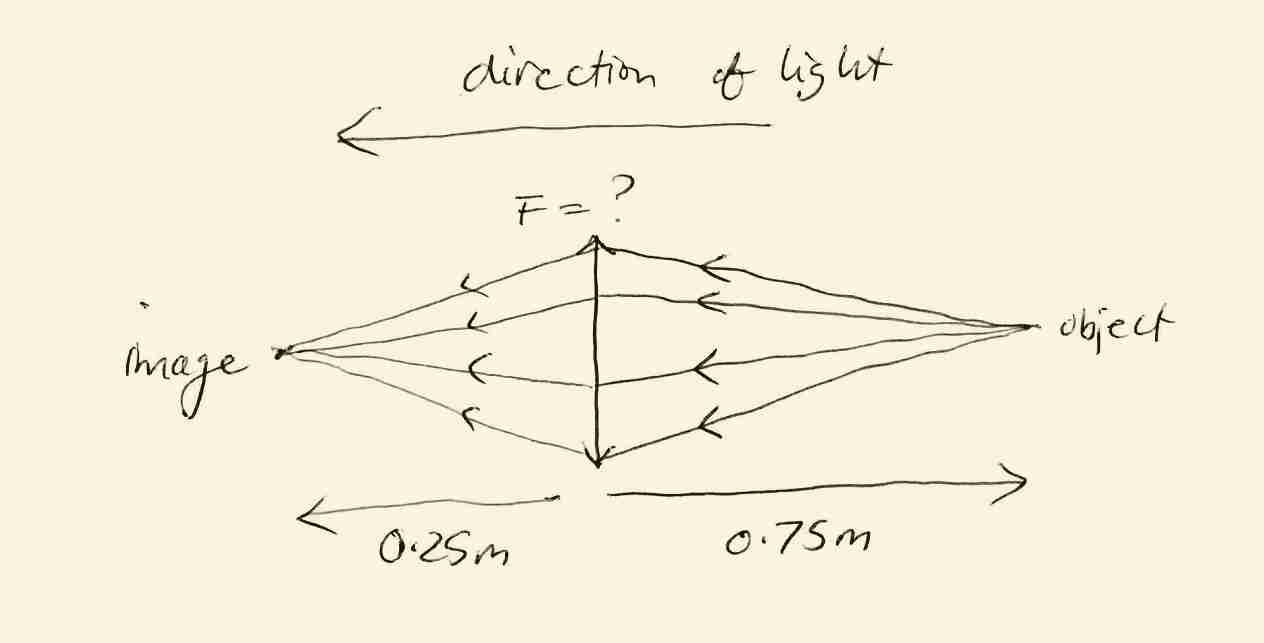 direction of light
F = ?
image
object
0.25m
0.75m